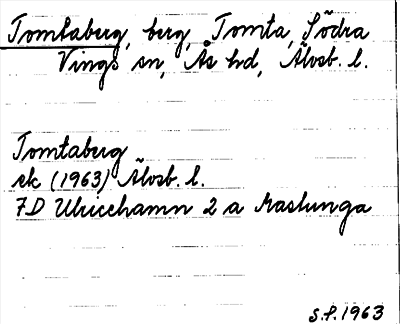 Tomtaberg, berg, Tomta, Södra
Vings sn, Ås hd, Älvsb. l.
Tomtaberg
ek (1963) Älvsb. l.
7D Ulricehamn 2 a Kaslunga
S.F. 1963